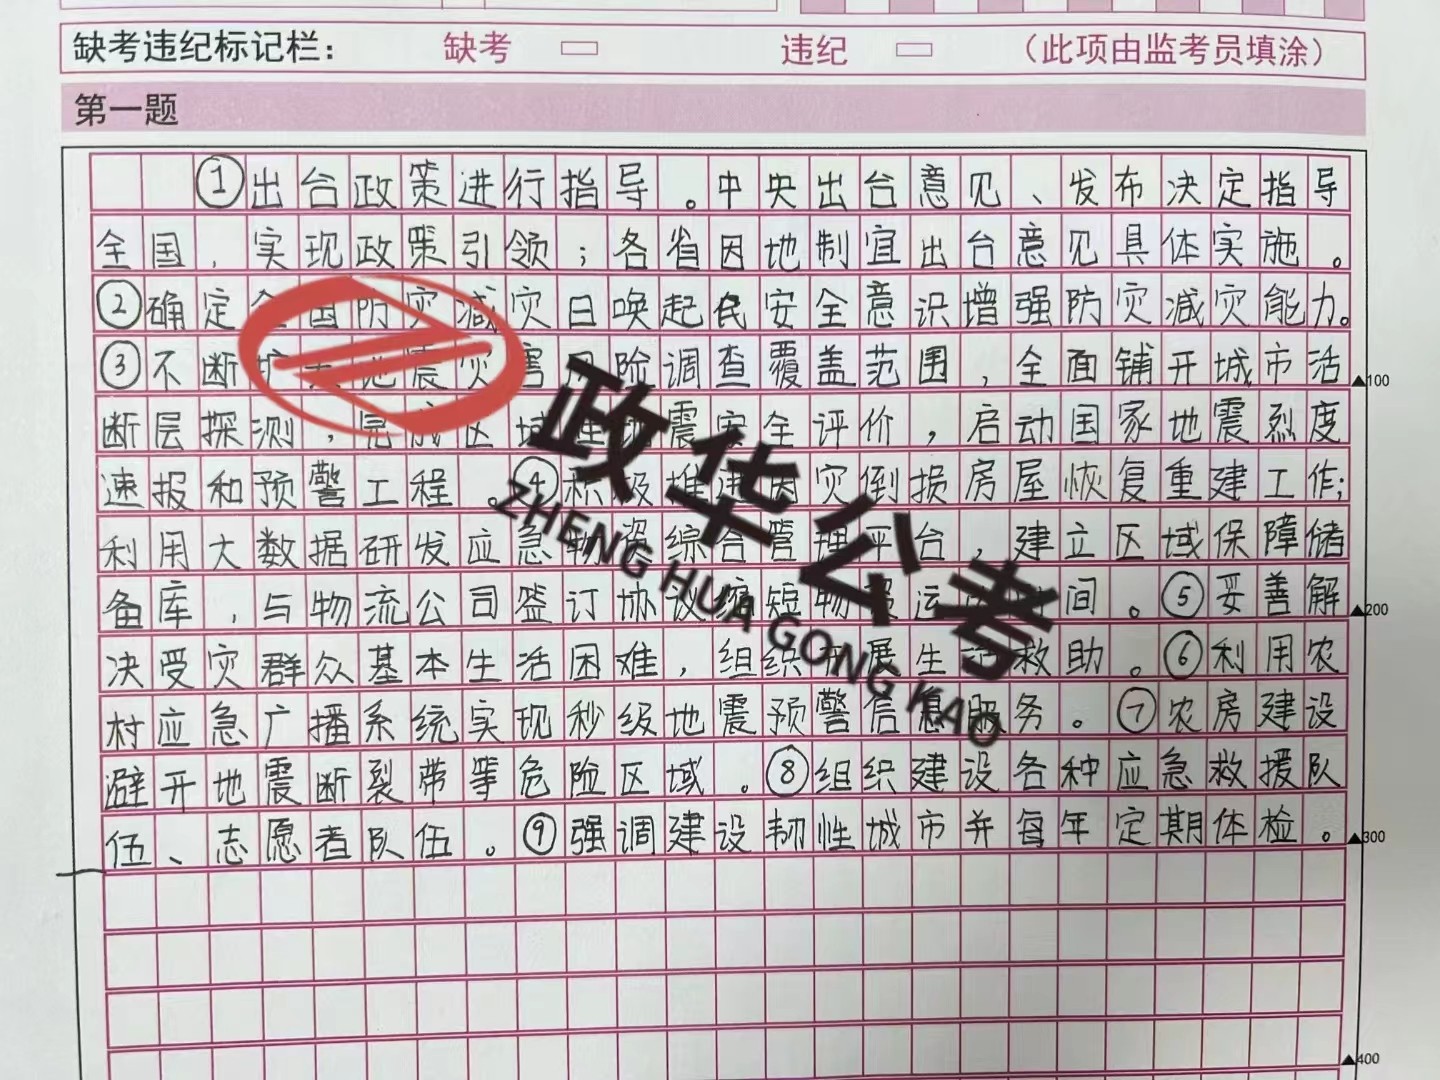 缺考违纪标记栏： 缺考 违纪 （此项由监考员填涂）
第一题
①出台政策进行指导。中央出台意见、发布决定指导
全国，实现政策引领；各省因地制宜出台意见具体实施。
②确定全国防灾减灾日唤起民安全意识增强防灾减灾能力。
③不断扩大地震灾害风险调查覆盖范围，全面铺开城市活
100
断层探测，完成区域性地震安全评价，启动国家地震烈度
速报和预警工程。④积极推进因灾倒损房屋恢复重建工作；
利用大数据研发应急物资综合管理平台，建立区域保障储
备库，与物流公司签订协议缩短物资运 间。⑤妥善解
200
决受灾群众基本生活困难，组织开展生活救助。⑥利用农
村应急广播系统实现秒级地震预警信息服务。⑦农房建设
避开地震断裂带等危险区域。⑧组织建设各种应急救援队
伍、志愿者队伍。⑨强调建设韧性城市并每年定期体检。
300
400
政华公考
ZHENG HUA GONG KAO